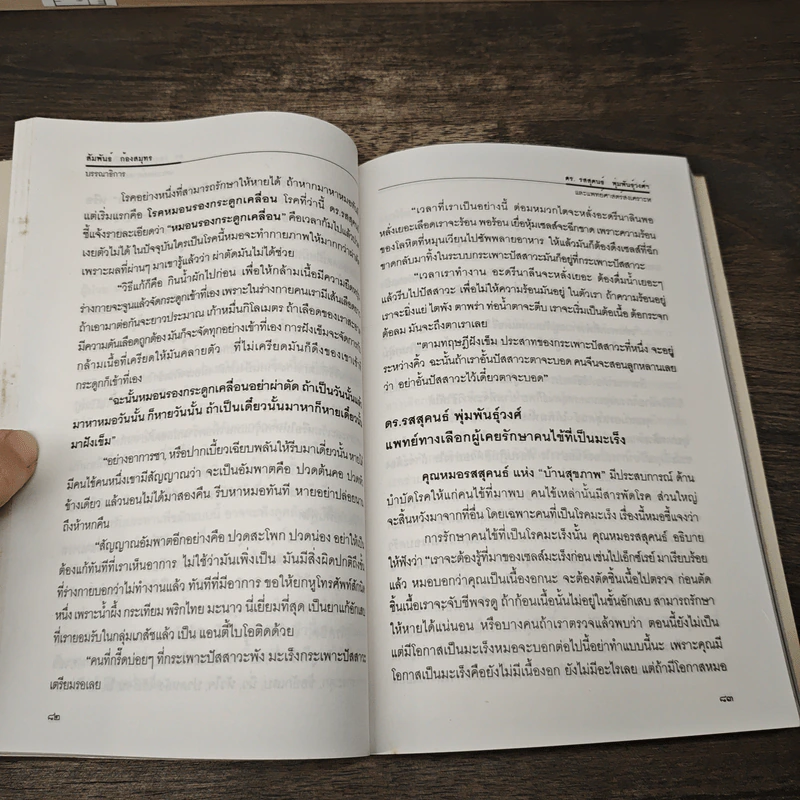 สัมพันธ์ ก้องสมุทร
บรรณาธิการ
โรคอย่างหนึ่งที่สามารถรักษาให้หายได้ ถ้าหากมาหาหมอ
แต่เริ่มแรกคือ โรคหมอนรองกระดูกเคลื่อน โรคที่ว่านี้ ดร.รสสุคนธ์
ชี้แจ้งรายละเอียดว่า "หมอนรองกระดูกเคลื่อน" คือเวลาก้มไปแล้ว
เงยตัวไม่ได้ ในปัจจุบันใครเป็นโรคนี้หมอจะทำกายภาพให้มากกว่า
เพราะผลที่ผ่านๆ มาเขารู้แล้วว่า ผ่าตัดมันไม่ได้ช่วย
"วิธีแก้ก็คือ กินน้ำผักไปก่อน เพื่อให้กล้ามเนื้อมีความยืดหยุ่น
ร่างกายจะจูนแล้วจัดกระดูกเข้าที่เอง เพราะในร่างกายคนเรามีเส้นเลือด
ถ้าเอามาต่อกันจะยาวประมาณ เก้าหมื่นกิโลเมตร ถ้าเลือดของเรา
มีความดันเลือดถูกต้อง มันก็จะจัดทุกอย่างเข้าที่เอง การฝังเข็มจะจัดการ
กล้ามเนื้อที่เครียดให้มันคลายตัว ที่ไม่เครียดมันก็ดึงของเขาเข้า
กระดูกก็เข้าที่เอง
"ฉะนั้นหมอนรองกระดูกเคลื่อนอย่าผ่าตัด ถ้าเป็นวันนั้นแล้ว
มาหาหมอวันนั้น ก็หายวันนั้น ถ้าเป็นเดี๋ยวนั้นมาหาก็หายเดี๋ยวนั้น
มาฝังเข็ม"
"อย่างอาการชา, หรือปากเบี้ยวเฉียบพลันให้รีบมาเดี๋ยวนั้น หายได้
มีคนไข้คนหนึ่งเขามีสัญญาณว่า จะเป็นอัมพาตคือ ปวดต้นคอ ปวด
ข้างเดียว แล้วนอนไม่ได้มาสองคืน รีบหาหมอทันที หายอย่าปล่อยนาน
ถึงห้าหกคืน
"สัญญาณอัมพาตอีกอย่างคือ ปวดสะโพก ปวดน่อง อย่าให้เป็น
ต้องแก้ทันทีที่เราเห็นอาการ ไม่ใช่ว่ามันเพิ่งเป็น มันมีสิ่งผิดปกติถึงขั้น
ที่ร่างกายบอกว่าไม่ทำงานแล้ว ทันทีที่มีอาการ ขอให้ยกหูโทรศัพท์สักนิด
หนึ่ง เพราะน้ำผึ้ง กระเทียม พริกไทย มะนาว นี่เยี่ยมที่สุด เป็นยาแก้อักเสบ
ที่เรายอมรับในกลุ่มเภสัชแล้ว เป็น แอนตี้ไบโอติคด้วย
"คนที่กรี๊ดบ่อยๆ ที่กระเพาะปัสสาวะพัง มะเร็งกระเพาะปัสสาวะ
เตรียมรอเลย
๘๒
ดร. รสสุคนธ์ พุ่มพันธุ์วงศ์
และแพทยศาสตร์สงเคราะห์
"เวลาที่เราเป็นอย่างนี้ ต่อมหมวกไตจะหลั่งอะดรีนาลินพอ
หลั่งเยอะเลือดเราจะร้อน พอร้อน เยื่อหุ้มเซลส์จะฉีกขาด เพราะความร้อน
ของโลหิตที่หมุนเวียนไปซัพพลายอาหาร ให้แล้วมันก็ต้องดึงเซลส์ที่ฉีก
ขาดกลับมาทิ้งในระบบกระเพาะปัสสาวะมันก็อยู่ที่กระเพาะปัสสาวะ
"เวลาเราทำงาน อะดรีนาลีนจะหลั่งเยอะ ต้องดื่มน้ำเยอะๆ
แล้วรีบไปปัสสาวะ เพื่อไม่ให้ความร้อนมันอยู่ ในตัวเรา ถ้าความร้อนอยู่
เราจะยิ่งแย่ ไตพัง ตาพร่า ท่อน้ำตาจะตีบ เราจะเริ่มเป็นต้อเนื้อ ต้อกระจก
ต้อลม มันจะถึงตาเราเลย
"ตามทฤษฎีฝังเข็ม ประสาทของกระเพาะปัสสาวะที่หนึ่ง จะอยู่
ระหว่างคิ้ว ฉะนั้นถ้าเราอั้นปัสสาวะตาจะบอด คนจีนจะสอนลูกหลานเลย
ว่า อย่าอั้นปัสสาวะไว้เดี๋ยวตาจะบอด"
ดร.รสสุคนธ์ พุ่มพันธุ์วงศ์
แพทย์ทางเลือกผู้เคยรักษาคนไข้ที่เป็นมะเร็ง
คุณหมอรสสุคนธ์ แห่ง "บ้านสุขภาพ" มีประสบการณ์ ด้าน
บำบัดโรคให้แก่คนไข้ที่มาพบ คนไข้เหล่านั้นมีสารพัดโรค ส่วนใหญ่
จะสิ้นหวังมาจากที่อื่น โดยเฉพาะคนที่เป็นโรคมะเร็ง เรื่องนี้หมอชี้แจงว่า
การรักษาคนไข้ที่เป็นโรคมะเร็งนั้น คุณหมอรสสุคนธ์ อธิบาย
ให้ฟังว่า "เราจะต้องรู้ที่มาของเซลส์มะเร็งก่อน เช่นไปเอ็กซ์เรย์ มาเรียบร้อย
แล้ว หมอบอกว่าคุณเป็นเนื้องอกนะ จะต้องตัดชิ้นเนื้อไปตรวจ ก่อนตัด
ชิ้นเนื้อเราจะจับชีพจรดู ถ้าก้อนเนื้อนั้นไม่อยู่ในขั้นอักเสบ สามารถรักษา
ให้หายได้แน่นอน หรือบางคนถ้าเราตรวจแล้วพบว่า ตอนนี้ยังไม่เป็น
แต่มีโอกาสเป็นมะเร็งหมอจะบอกต่อไปนี้อย่าทำแบบนี้นะ เพราะคุณมี
โอกาสเป็นมะเร็งคือยังไม่มีเนื้องอก ยังไม่มีอะไรเลย แต่ถ้ามีโอกาสหมอ
๘๓